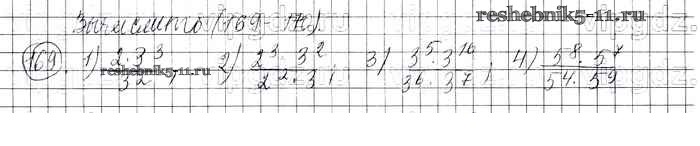 Вычислить (169-172).
reshebnik5-11.ru
169. 1) 2·3³/3²; 2) 2³·3²/2²·3; 3) 3⁵·3¹⁶/3⁶·3⁷; 4) 5⁸·5⁷/5⁴·5⁹
reshebnik5-11.ru